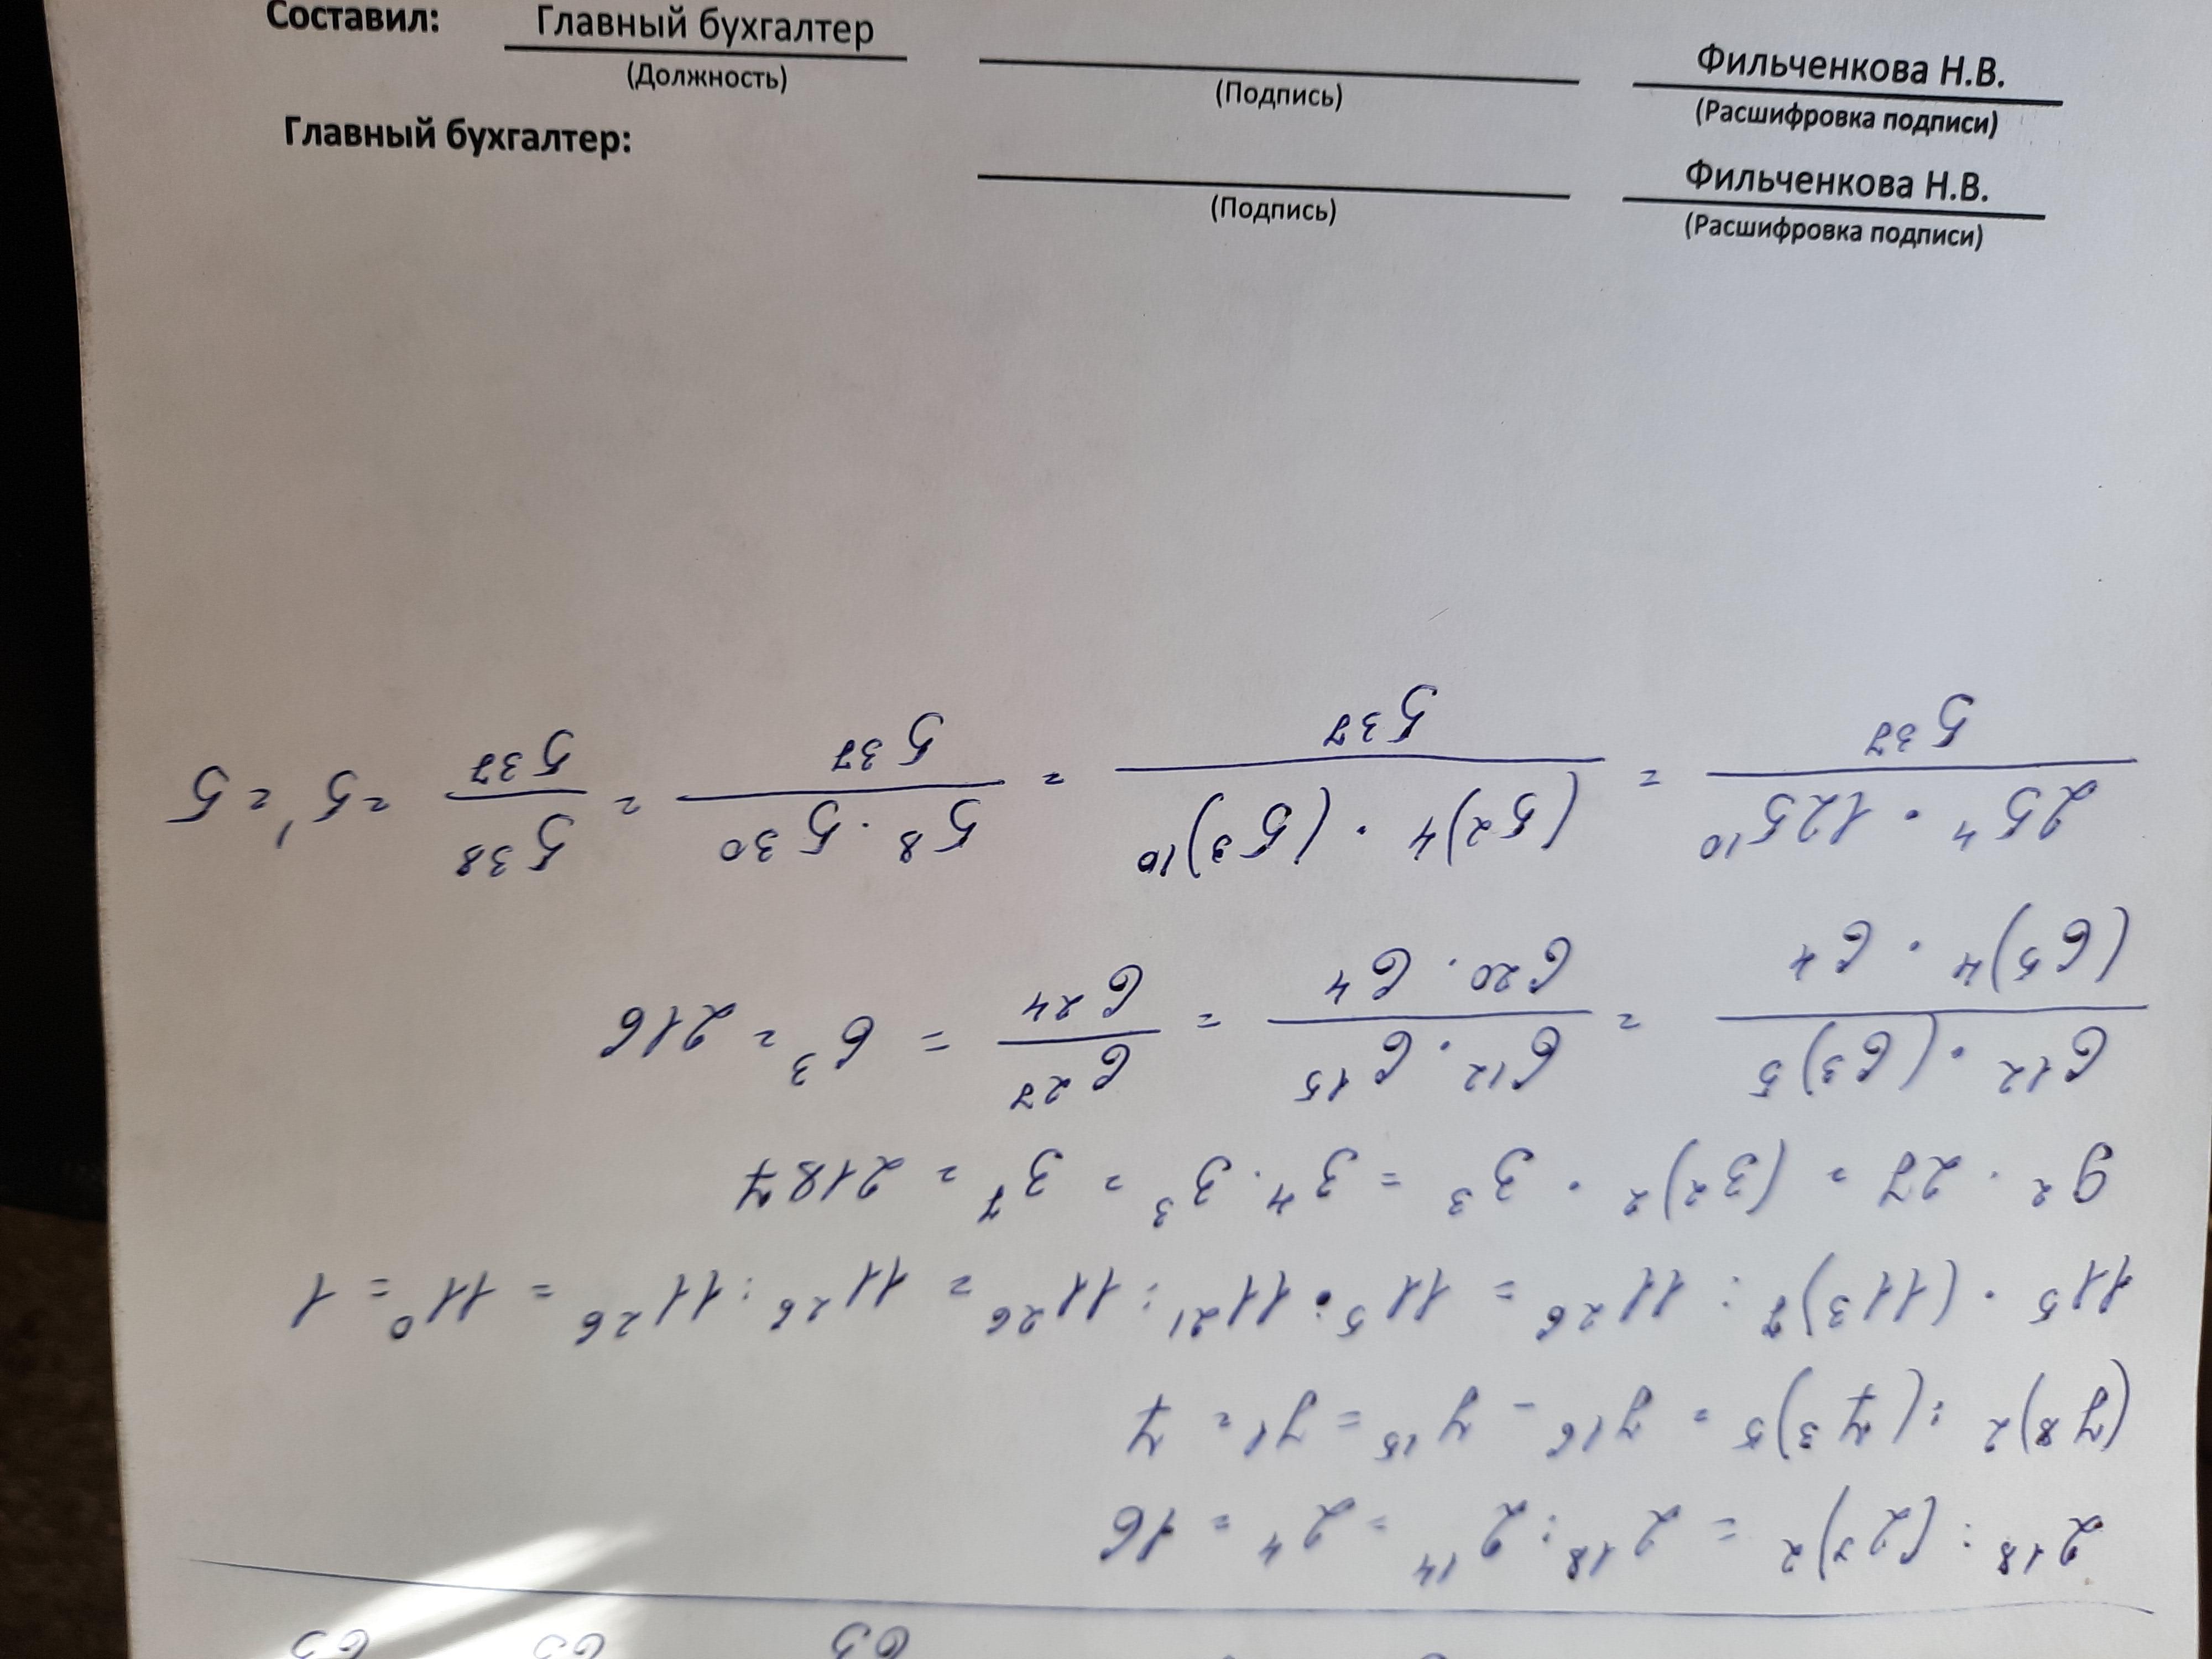 Составил: Главный бухгалтер Фильченкова Н.В.
(Должность) (Подпись) (Расшифровка подписи)
Главный бухгалтер: Фильченкова Н.В.
(Подпись) (Расшифровка подписи)
2¹⁸ : (2⁷)² = 2¹⁸ : 2¹⁴ = 2⁴ = 16
(7⁸)² : (7³)⁵ = 7¹⁶ - 7¹⁵ = 7¹ = 7
11⁵ · (11³)⁷ : 11²⁶ = 11⁵ · 11²¹ : 11²⁶ = 11²⁶ : 11²⁶ = 11⁰ = 1
9² · 27 = (3²)² · 3³ = 3⁴ · 3³ = 3⁷ = 2187
6¹² · (6³)⁵ / (6⁵)⁴ · 6⁴ = 6¹² · 6¹⁵ / 6²⁰ · 6⁴ = 6²⁷ / 6²⁴ = 6³ = 216
25⁴ · 125¹⁰ / 5³⁷ = (5²)⁴ · (5³)¹⁰ / 5³⁷ = 5⁸ · 5³⁰ / 5³⁷ = 5³⁸ / 5³⁷ = 5¹ = 5